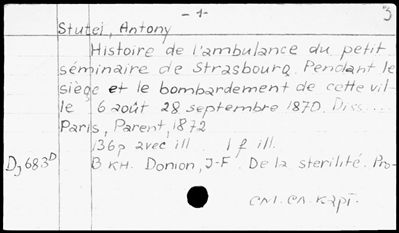 - 1 -
3
Stutel, Antony
Histoire de l'ambulance du petit
séminaire de Strasbourg. Pendant le
siège et le bombardement de cette vil-
le 6 août 28 septembre 1870. Diss....
Paris, Parent, 1872
136p avec ill. 1 f ill.
Dj683D В кн. Donion, J-F. De la sterilité. Pro-